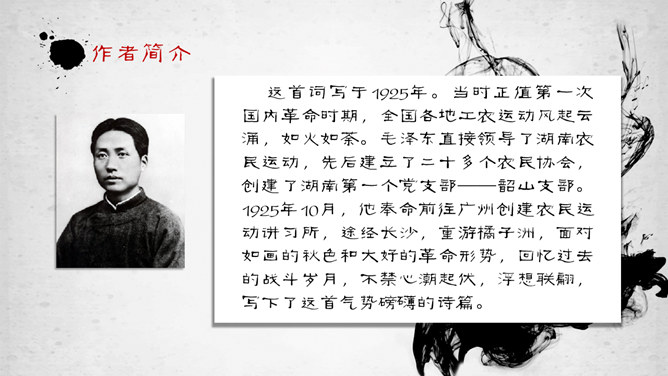 作者简介
这首词写于1925年。当时正值第一次
国内革命时期，全国各地工农运动风起云
涌，如火如荼。毛泽东直接领导了湖南农
民运动，先后建立了二十多个农民协会，
创建了湖南第一个党支部——韶山支部。
1925年10月，他奉命前往广州创建农民运
动讲习所，途经长沙，重游橘子洲，面对
如画的秋色和大好的革命形势，回忆过去
的战斗岁月，不禁心潮起伏，浮想联翩，
写下了这首气势磅礴的诗篇。